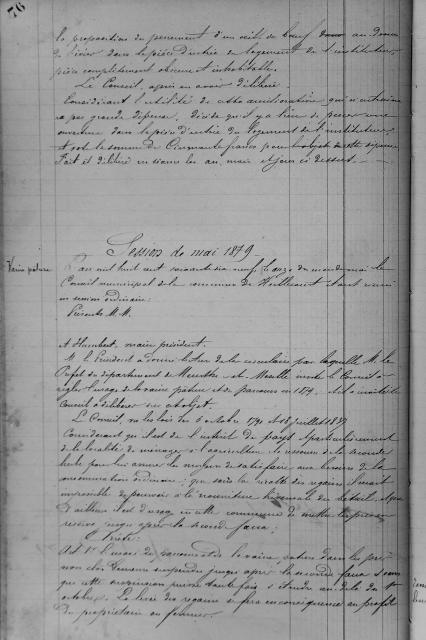 76
la proposition du percement d'un œil de bœuf au dessus
de l'évier dans la pièce d'entrée du logement de l'instituteur,
pièce complètement obscure et inhabitable.
Le Conseil, après en avoir délibéré.
Considérant l'utilité de cette amélioration qui n'entraînera
pas grande dépense. Décide qu'il y a lieu de percer une
ouverture dans la pièce d'entrée du logement de l'instituteur,
et vote la somme de Cinquante francs pour l'objet de cette dépense
Fait et délibéré en séance les an, mois et jour ci dessus.
Session de mai 1879
Vaine pâture
L'an mil huit cent soixante dix neuf, le onze du mois de mai le
Conseil municipal de la commune de s'est réuni
en session ordinaire.
Présents M.M.
et Humbert, maire président.
M. le Président a donné lecture de la circulaire par laquelle M. le
Préfet du département de Meurthe et Moselle invite le Conseil à
régler l'usage de la vaine pâture et du parcours en 1879. et il invite le
Conseil à délibérer sur cet objet.
Le Conseil, vu les lois des 6 octobre 1791 et 18 juillet 1837
Considérant qu'il est de l'intérêt du pays et particulièrement
de la localité de ménager à l'agriculture les ressources de la seconde
herbe pour lui donner les moyens de satisfaire aux besoins de la
consommation ordinaire; que sans la récolte des regains il serait
impossible de pourvoir à la nourriture hivernale du bétail. Que
d'ailleurs il est d'usage en cette commune de mettre les prés en
réserve jusqu'après la seconde faux;
Arrête:
Art. 1er L'usage du parcours et de la vaine pâture dans les prés
non clos demeure suspendu jusqu'après la seconde faux sans
que cette suspension puisse toutefois s'étendre au delà du 1er
octobre. La levée des regains se fera en conséquence au profit
du propriétaire ou fermier.